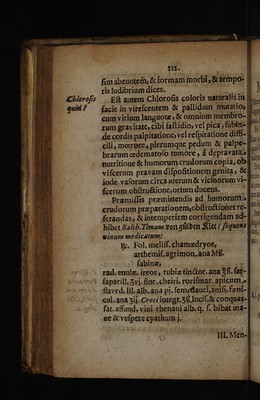 212.
sim abeuntem, & formam morbi, & tempo-
ris ludibrium dices.
Chlorosis
quid?
Est autem Chlorosis coloris naturalis in
facie in virescentem & pallidum mutatio,
cum virium languore, & omnium membro-
rum gravitate, cibi fastidio, vel pica, subin-
de cordis palpitatione, vel respiratione diffi-
cili, mœrore, plerumque pedum & palpe-
brarum œdematoso tumore, à depravata
nutritione & humorum crudorum copia, ob
viscerum pravam dispositionem genita, &
inde vasorum circa uterum & vicinorum vi-
scerum obstructione, ortum ducens.
Præmissis præmittendis ad humorum
crudorum præparationem, obstructiones re-
serandas, & intemperiem corrigendam ad-
hibet Balth. Timæus von gülden Klee / sequens
vinum medicatum:
℞. Fol. meliss. chamædryos,
arthemis. agrimon. ana Mß.
sabinæ,
rad. enulæ, ireos, rubiæ tinctor. ana ʒß. sar-
saparill. ʒvj. flor. cheiri, rorismar. apicum
flav. lil. alb. ana pi. sem. dauci, anisi, fœni-
cul. ana ʒij. Croci integr. ʒß. Incis. & conquas-
sat. affund. vini rhenani alb. q. s. bibat ma-
ne & vespere cyathum j.
III. Men-